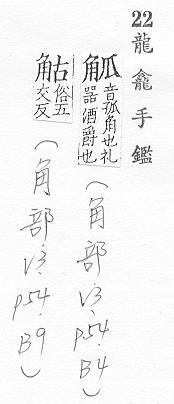 22龍龕手鑑
觚音孤角也礼器酒爵也(角部.V3.P54.B4)
𧣡俗五交反(角部.V3.P54.B9)